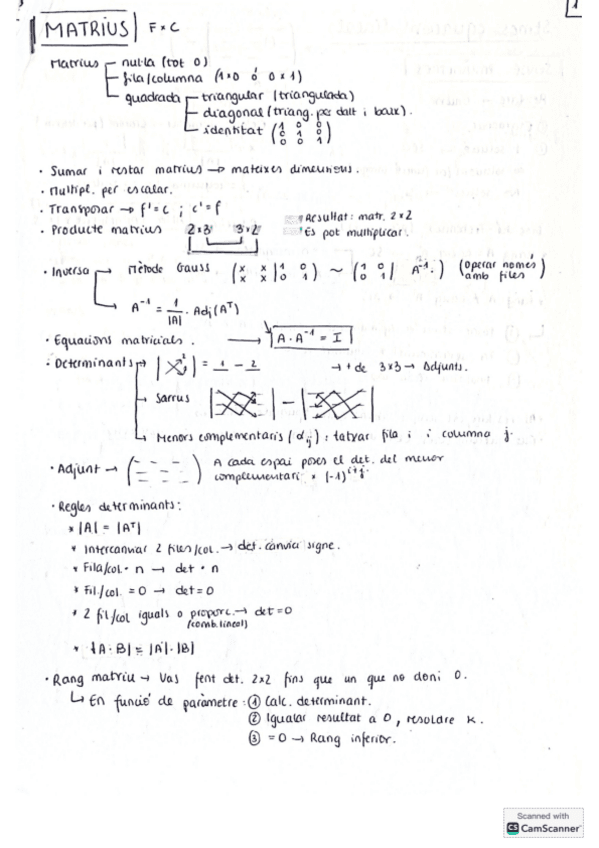 1
MATRIUS F×C
Matrius nul·la (tot 0)
fila/columna (1×0 ó 0×1)
quadrada triangular (triangulada)
diagonal (triang. per dalt i baix).
identitat (1 0 0
0 1 0
0 0 1)
· Sumar i restar matrius → mateixes dimensions.
· Multipl. per escalar.
· Transposar → f'=c ; c'=f
· Producte matrius 2×3 3×2 Resultat: matr. 2×2
És pot multiplicar.
· Inversa Mètode Gauss (x x | 1 0
x x | 0 1) ~ (1 0 | A⁻¹
0 1 | ) (operar només
amb files)
A⁻¹ = 1/|A| · Adj(Aᵀ)
· Equacions matricials. → A·A⁻¹ = I
· Determinants → = 1 - 2 → + de 3×3 → Adjunts.
→ Sarrus | | - | |
Menors complementaris (αij): tatxar fila i i columna j.
· Adjunt → A cada espai poses el det. del menor
complementari × (-1)ⁱ⁺ʲ
· Regles determinants:
* |A| = |Aᵀ|
* Intercanviar 2 files/col. → det. canvia signe.
* Fila/col · n → det · n
* Fil/col. = 0 → det = 0
* 2 fil/col iguals o proporc. → det = 0
(comb. lineal)
* |A·B| = |A|·|B|
· Rang matriu → Vas fent det. 2×2 fins que un que no doni 0.
↳ En funció de paràmetre: ① Calc. determinant.
② Igualar resultat a 0, resoldre k.
③ = 0 → Rang inferior.
Scanned with
CS CamScanner